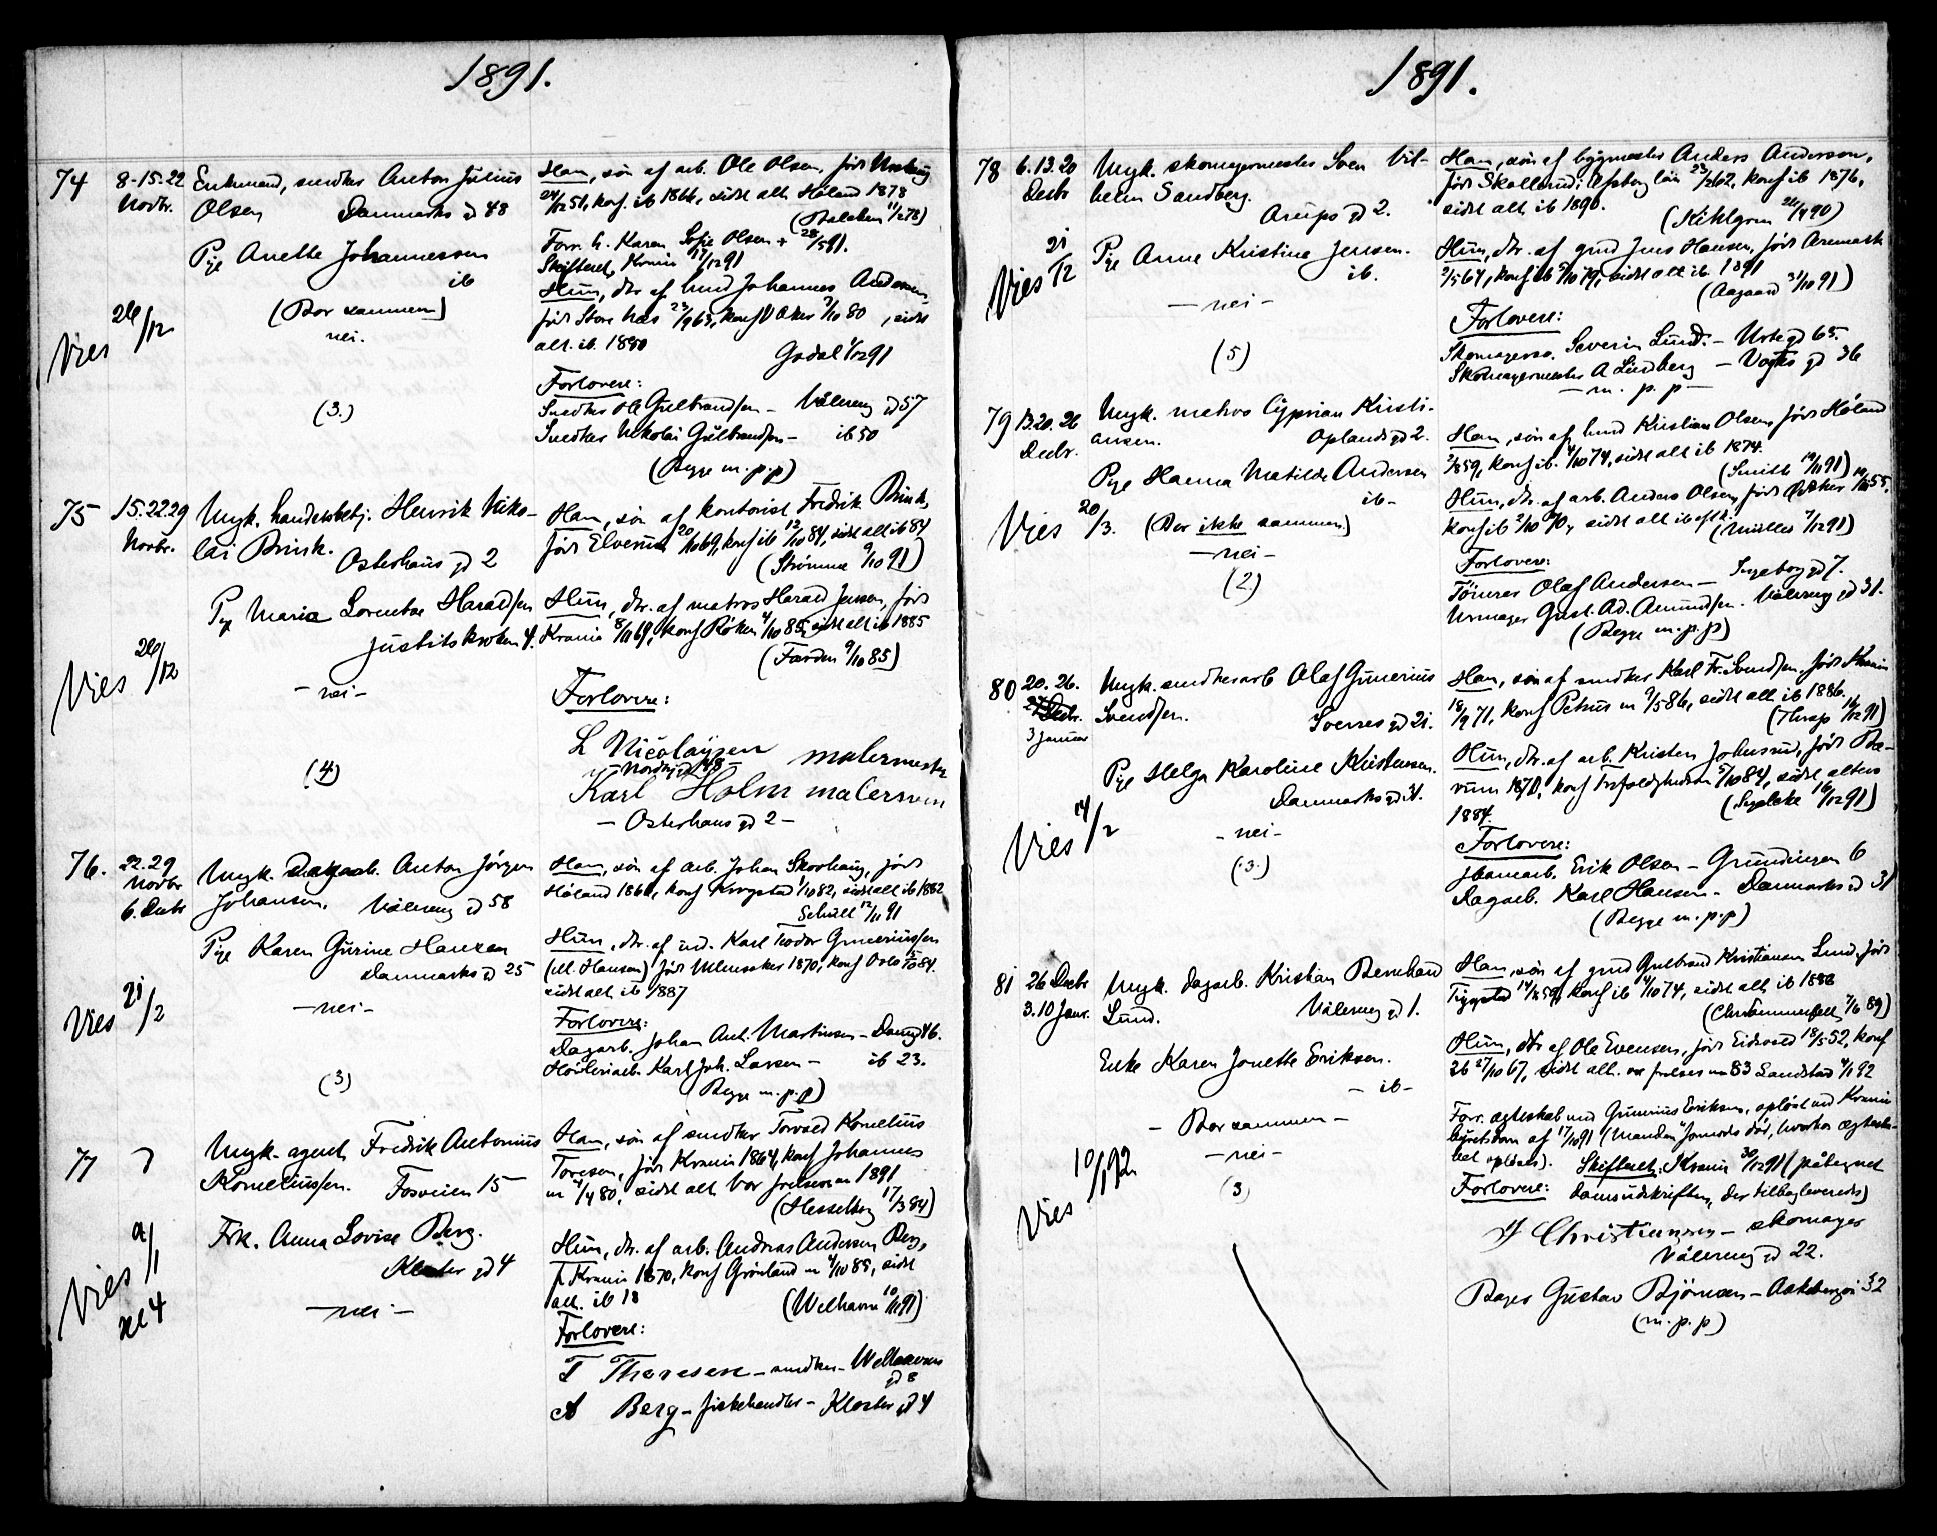 1891.
74 8-15.22 Novbr. Enkemand, smed Anton Julius
Olsen Danmarks gd 48
Pige Anette Johannessen
ib
(Bor sammen)
nei.
Vies 26/12
(3.)
Han, søn af arb. Ole Olsen, født
konf. ib 1866, sidst alt. Høland 1878
Forr. h. Karen Sofie Olsen + 28/5 91.
Skifteret, Krania 17/12 91
Hun, dtr af husm Johannes Andersen,
født Store 23/9 63, konf V Aker 3/10 80, sidst
alt. ib. 1890
Gadal 1/12 91
Forlovere:
Snedker Ole Gulbrandsen – Vålereng gd 57
Snedker Nikolai Gulbrandsen – ib 50
(Begge m.p.p)
75 15.22.29 Novbr. Ungk. handelsbetj. Henrik Niko-
lai Brink. Osterhaus gd 2
Pige Maria Lorentse Haraldsen
Justitskroken 4.
Vies 26/12
– nei –
(4)
Han, søn af kontorist Fredrik Brink,
født Elverum 20/10 69, konf ib 12/10 84, sidst alt ib 84
(Strömme 9/10 91)
Hun, dtr. af matros Harald Jensen, født
Krania 8/11 69, konf Röken 4/10 85, sidst alt ib 1885
(Farden 9/10 85)
Forlovere:
L Nicolaysen malermester
– Nordbygd 48 –
Karl Holm malersvenn
– Osterhaus gd 2 –
76. 22.29 Novbr 6. Decbr Ungk. Dagarb. Anton Jørgen
Johansen. Vålereng gd 58
Pige Karen Gurine Hansen
Danmarks gd 25
– nei –
Vies 21/2
(3)
Han, søn af arb. Johan Skovhaug, født
Høland 1866, konf Krogstad 1/10 82, sidst alt ib 1882
Schult 12/11 91
Hun, dtr. af Karl Teodor Gunerius/en
(M. Hansen) født Ullensaker 1870, konf Oslo 84.
sidst alt ib 1887
Forlovere:
Dagarb. Johan Ant. Martinsen – Danmgd 46.
Høvleriarb. Karl Joh. Larsen – ib 23.
Begge m.p.p)
77 Ungk. agent Fredrik Antonius
Korneliussen. Fosveien 15
Frk. Anna Lovise Berg.
Kloster gd 4
– nei –
Vies 9/1
kl 4
Han, søn af smed Torvald Kornelius
Toresen, født Krania 1864, konf Johannes
m 4/4 80, sidst alt Vor frelsers m 1891
(Hesselberg 17/3 84)
Hun, dtr. af arb. Andreas Andersen Berg,
f Krania 1870, konf Grönland m 4/10 85, sidst
alt. ib 18
(Welhaven 10/11 91)
Forlovere:
T Thoresen – smed – Welhavens
gd 8
A Berg – fiskehandler – Kloster gd 4
1891.
78 6.13.20 Decbr Ungk. skomagermester Sven Vil-
helm Sandberg.
Arups gd 2.
Pige Anne Kristine Jensen.
ib.
– nei –
Vies 21/12
(5)
Han, søn af bygmester Anders Anderson,
født Skallerud i Elfsborg län 23/2 62, konf ib 1876,
sidst alt ib 1890.
(Kihlgren 26/4 90)
Hun, dtr. af grd Jens Hansen, født Aremark
2/5 64, konf ib 5/10 79, sidst alt ib 1891
(Aagaard 31/10 91)
Forlovere:
Skomagersv. Severin Lund. – Urtegd 65.
Skomagermester A Lindberg – Vogts gd 36
– m. p. p –
79 13.20.26 Decbr. Ungk. matros Cyprian Kristi-
ansen. Oplands gd 2.
Pige Hanna Matilde Andersen
ib –
(Bor ikke sammen)
– nei –
(2)
Vies 20/3.
Han, søn af husm Kristian Olsen, født Høland
2/8 59, konf ib. 4/10 74, sidst alt ib 1874.
(Smith 14/10 91)
Hun, dtr. af arb. Anders Olsen, født
konf ib 2/10 70, sidst alt ib
(Müller 7/12 91)
Forlovere:
Tömrer Olaf Andersen – Ingeborg gd 7.
Urmager Gust. Ad. Amundsen. Vålereng gd 31.
(Begge m.p.p)
80 20.26. Decbr. 3 Januar Ungk. smedarb Olaf Gunerius
Svendsen. Sverres gd 21.
Pige Helga Karoline Kristensen.
Danmarks gd 31.
– nei –
(3)
Vies 14/2
Han, søn af smed Karl Fr. Svendsen, født Krania
18/9 71, konf Petrus m 9/5 86, sidst alt ib 1886.
(Thrap 14/12 91)
Hun, dtr. af arb. Kristen Johnsrud, født Bæ-
rum 1870, konf Trefoldigheden 5/10 84, sidst alters
1884.
(Lyslake 16/12 91)
Forlovere:
Jernarb. Erik Olsen – Gründingen 6
Dagarb. Karl Hansen – Danmarks gd 31
(Begge m.p.p)
81 26 Decbr 3.10 Jan. Ungk. dagarb. Kristian Bernhard
Lund. Vålereng gd 1.
Enke Karen Jonette Eriksen.
– ib –
– Bor sammen –
– nei –
(3)
Vies 10/1 92
Han, søn af grd Gulbrand Kristiansen Lund, født
Trøgstad 59, konf ib 4/10 74, sidst alt ib 1888
(Chr. Sommerfelt 7/6 89)
Hun, dtr af Ole Evensen, født Eidsvold 18/5 52, konf
ib 27/10 67, sidst alt. vor frelsers m 83 Landstad 4/1 92
Forr. ægteskab med Gunerius Eriksen, opløst ved Krania
byretsdom af 17/10 91 (Manden formodes død, hvorfor ægteska-
bet opløses). Skifteret, Krania 30/12 91 (påtegnet
Forlovere: domsudskriften, der tilbageleveredes)
Christiansen – skomager
Vålereng gd 22.
Bager Gustav Björnsen – Aakebergv 32
(m.p.p)